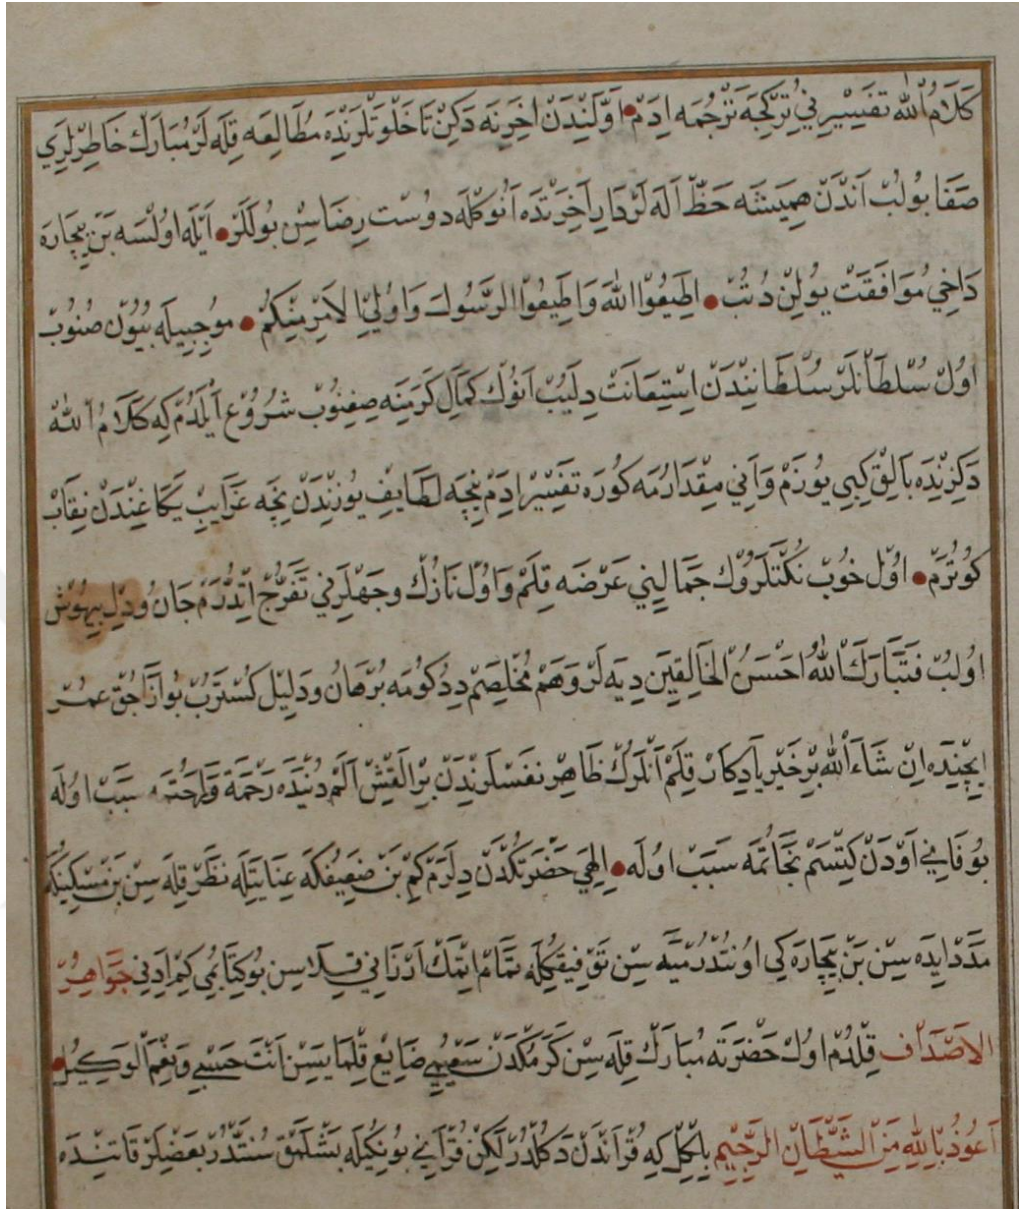 كَلَامُ اللّٰه تَفْسِيْرِنِي تُرْكِجَه تَرْجُمَه اِدَمْ • اَوَّلِنْدَنْ اٰخِرِنَه دَكِنْ تَا خَلْوَتْلَرِنْدَه مُطَالَعَه قِلَه لَرْ مُبَارَكْ خَاطِرْلَرِي
صَفَا بُولُبْ اَنْدَنْ هَمِيشَه حَظّ اَلَه لَرْ دَارِ اٰخِرَتْدَه اَنُوكِلَه دُوسْت رِضَاسِنْ بُولَلَرْ • اَيْلَه اُولْسَه بَنْ بِيچَارَه
دَاخِي مُوَافَقَتْ يُولِنْ دُتُبْ • اَطِيعُوا اللّٰهَ وَاَطِيعُوا الرَّسُولَ وَاُولِي الْاَمْرِ مِنْكُمْ • مُوجِبِيلَه بُيُونْ صُنُوبْ
اُولْ سُلْطَانْلَرْ سُلْطَانِنْدَنْ اِسْتِعَانَتْ دِلَيُبْ اَنُوكْ كَمَالِ كَرَمِنَه صِغِنُوبْ شُرُوعْ اَيْلَدُمْ كِه كَلَامُ اللّٰه
دَكِزِنْدَه بَالِقْ كِبِي يُوزَمْ وَاَنِي مِقْدَارُمَه كُورَه تَفْسِيْر اِدَمْ نِيچَه لَطَايِفْ يُوزِنْدَنْ نِچَه غَرَايِبْ يَكَاغِنْدَنْ نِقَابْ
كُوتُرَمْ • اُولْ خُوبْ نُكْتَلَرُوكْ جَمَالِنِي عَرْضَه قِلَمْ وَاُولْ نَازُكْ وَجَهْلَرِنِي تَفَرُّجْ اِتْدُرَمْ جَان وُ دِلْ بِيهُوشْ
اُولُبْ فَتَبَارَكَ اللّٰهُ اَحْسَنُ الْخَالِقِينَ دِيَه لَرْ وَهَمْ مُخْلِصَمْ دِدُكُومَه بُرْهَانْ وَدَلِيلْ كُسْتَرُبْ بُو اَزَاجُقْ عُمُرْ
اِيچِنْدَه اِنْ شَاءَ اللّٰه بِرْ خَيْرْ يَادِكَارْ قِلَمْ اَنْلَرُكْ ظَاهِرْ نَفَسْلَرِنْدَنْ بِرْ اَلْقِشْ اَلَمْ دُنْيَدَه رَحْمَة وَرَاحَتُمَه سَبَبْ اُولَه
بُو فَانِي اَوْدَنْ كِتْسَمْ نَجَاتُمَه سَبَبْ اُولَه • اِلٰهِي حَضْرَتُكْدَنْ دِلَرَمْ كِمْ بَنْ ضَعِيفُكَه عِنَايَتِلَه نَظَرْ قِلَه سِنْ بَنْ مِسْكِينُكَه
مَدَدْ اِيدَه سِنْ بَنْ بِيچَارَه كِي اُونُتْدُرْمَيَه سِنْ تَوْفِيقُكِلَه تَمَامْ اِتْمَكْ اَرْزَانِي قِلَاسِنْ بُو كِتَابُمِي كِمْ اَدِنِي جَوَاهِرُ
الْاَصْدَافْ قِلْدُمْ اُولْ حَضْرَتَه مُبَارَكْ قِلَه سِنْ كَرَمُكْدَنْ سَعْيُمِي ضَايِعْ قِلْمَايَسِنْ اَنْتَ حَسْبِي وَنِعْمَ الْوَكِيلُ •
اَعُوذُ بِاللّٰهِ مِنَ الشَّيْطَانِ الرَّجِيمِ بِلْكِلْ كِه قُرْاٰنْدَنْ دَكُلْدُرْ لٰكِنْ قُرْاٰنِي بُونُكِيلَه بَشْلَمَقْ سُنَّتْدُرْ بَعْضِلَرْ قَاتِنْدَه